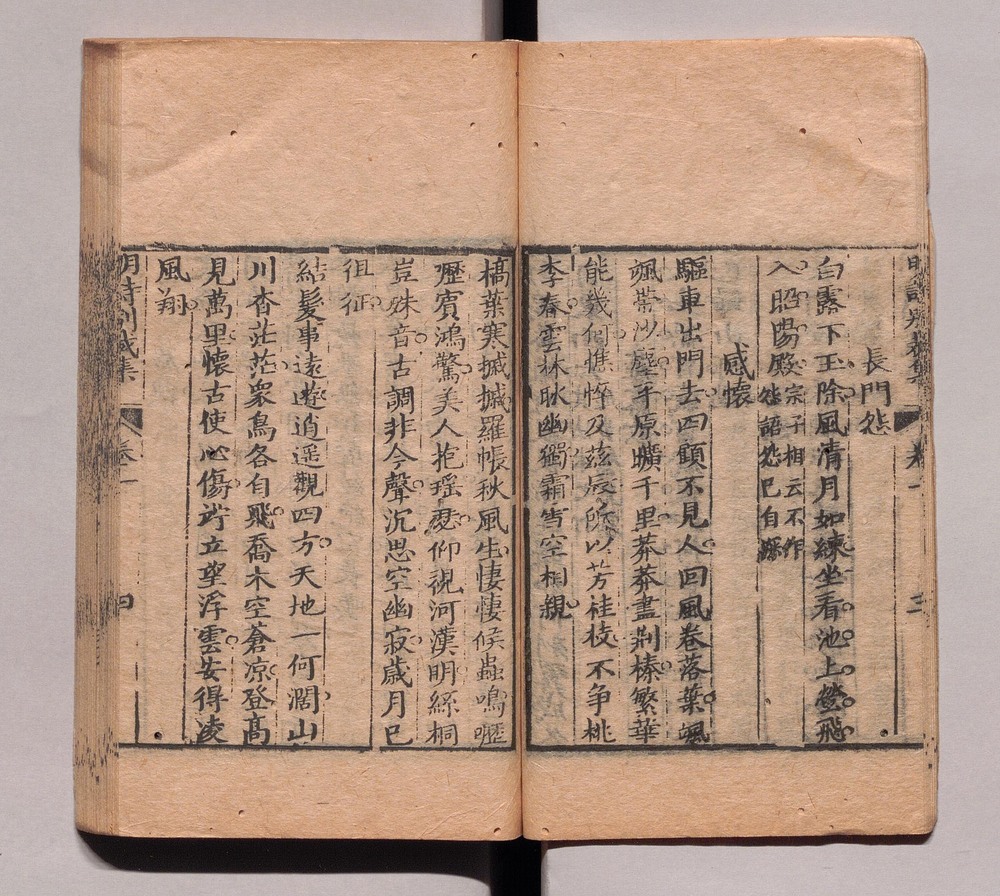 長門怨
白露下玉除風清月如練坐看池上螢飛
入昭陽殿宗子相云不作怨語怨已自深
感懷
驅車出門去四顧不見人回風卷落葉颯
颯帶沙塵平原曠千里莽莽盡荆榛繁華
能幾何憔悴及茲辰所以芳桂枝不争桃
李春雲林耿幽獨霜雪空相親
槁葉寒摵摵羅帳秋風生悽悽候蟲鳴嚦
嚦賓鴻驚美人抱瑶瑟仰視河漢明絲桐
豈殊音古調非今聲沉思空幽寂歲月已
徂征
結髮事遠遊逍遥觀四方天地一何濶山
川杳茫茫衆鳥各自飛喬木空蒼凉登高
見萬里懷古使心傷竚立望浮雲安得凌
風翔
明詩別裁集 卷一 四